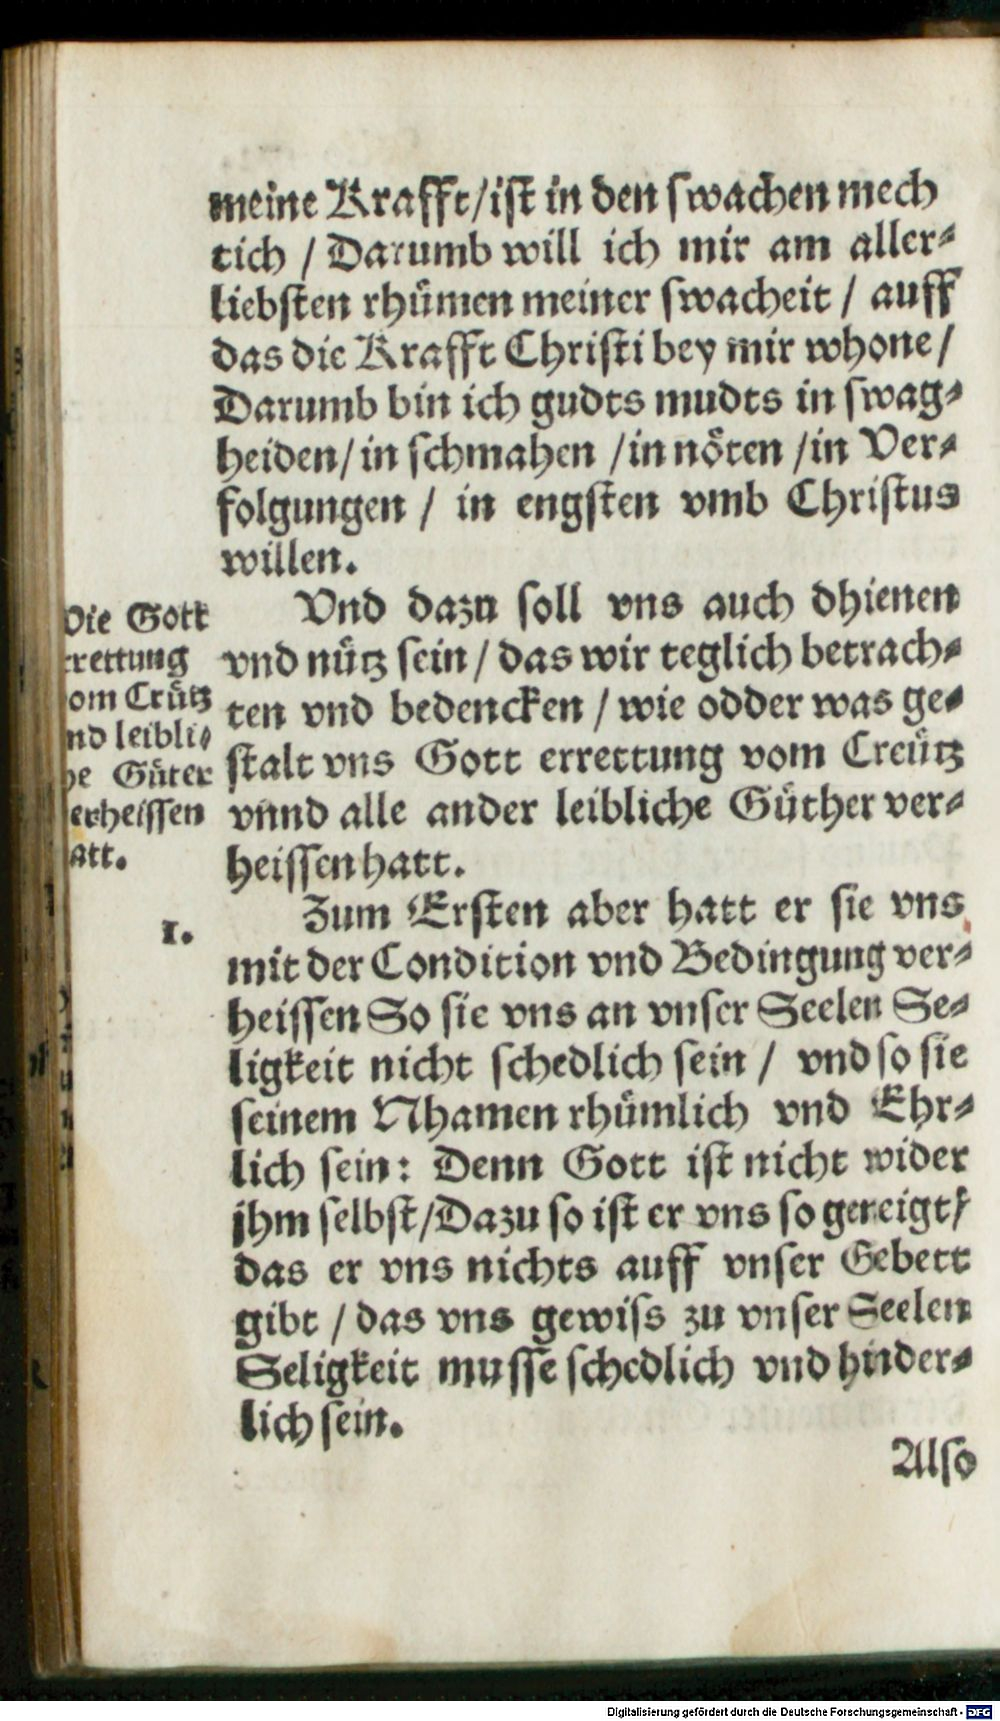 meine Krafft/ist in den swachen mech
tich / Darumb will ich mir am aller⸗
liebsten rhümen meiner swacheit / auff
das die Krafft Christi bey mir whone /
Darumb bin ich gudts mudts in swag⸗
heiden/ in schmahen /in nöten /in Ver⸗
folgungen / in engsten vmb Christus
willen.
Vnd dazu soll vns auch dhienen
vnd nütz sein / das wir teglich betrach⸗
ten vnd bedencken / wie odder was ge⸗
stalt vns Gott errettung vom Creütz
vnnd alle ander leibliche Güther ver⸗
heissen hatt.
Die Gott
rrettung
om Crütz
nd leibli⸗
he Güter
erheissen
att.
Zum Ersten aber hatt er sie vns
1.
mit der Condition vnd Bedingung ver⸗
heissen So sie vns an vnser Seelen Se⸗
ligkeit nicht schedlich sein / vnd so sie
seinem Nhamen rhümlich vnd Ehr⸗
lich sein: Denn Gott ist nicht wider
jhm selbst/Dazu so ist er vns so gereigt/
das er vns nichts auff vnser Gebett
gibt / das vns gewiss zu vnser Seelen
Seligkeit musse schedlich vnd hinder⸗
lich sein.
Also
Digitalisierung gefördert durch die Deutsche Forschungsgemeinschaft - DFG